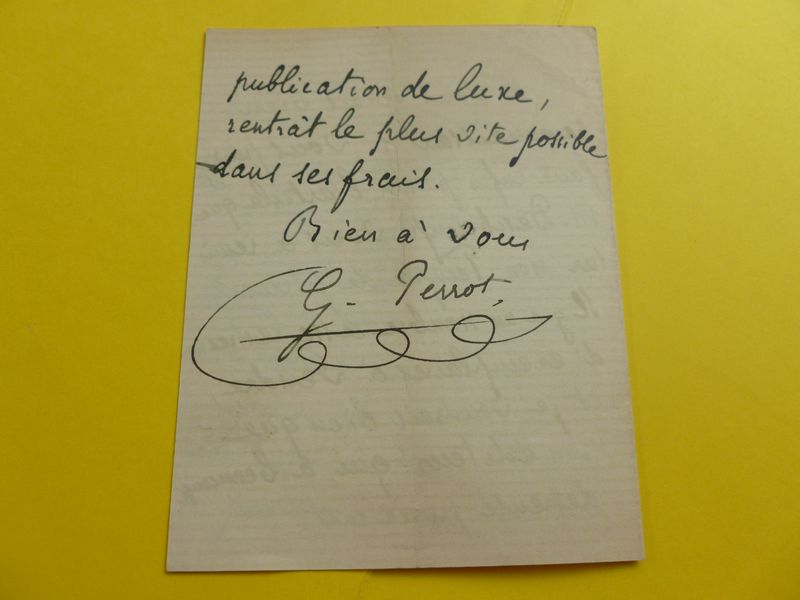 publication de luxe,
rentrât le plus vite possible
dans ses frais.
Bien à vous
G. Perrot.